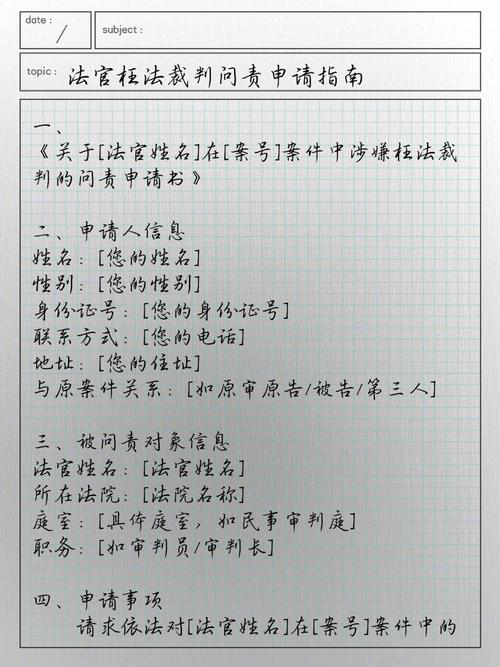 date :
/
subject :
topic : 法官枉法裁判问责申请指南
一、
《关于[法官姓名]在[案号]案件中涉嫌枉法裁
判的问责申请书》
二、申请人信息
姓名：[您的姓名]
性别：[您的性别]
身份证号：[您的身份证号]
联系方式：[您的电话]
地址：[您的住址]
与原案件关系：[如原审原告/被告/第三人]
三、被问责对象信息
法官姓名：[法官姓名]
所在法院：[法院名称]
庭室：[具体庭室，如民事审判庭]
职务：[如审判员/审判长]
四、申请事项
请求依法对[法官姓名]在[案号]案件中的